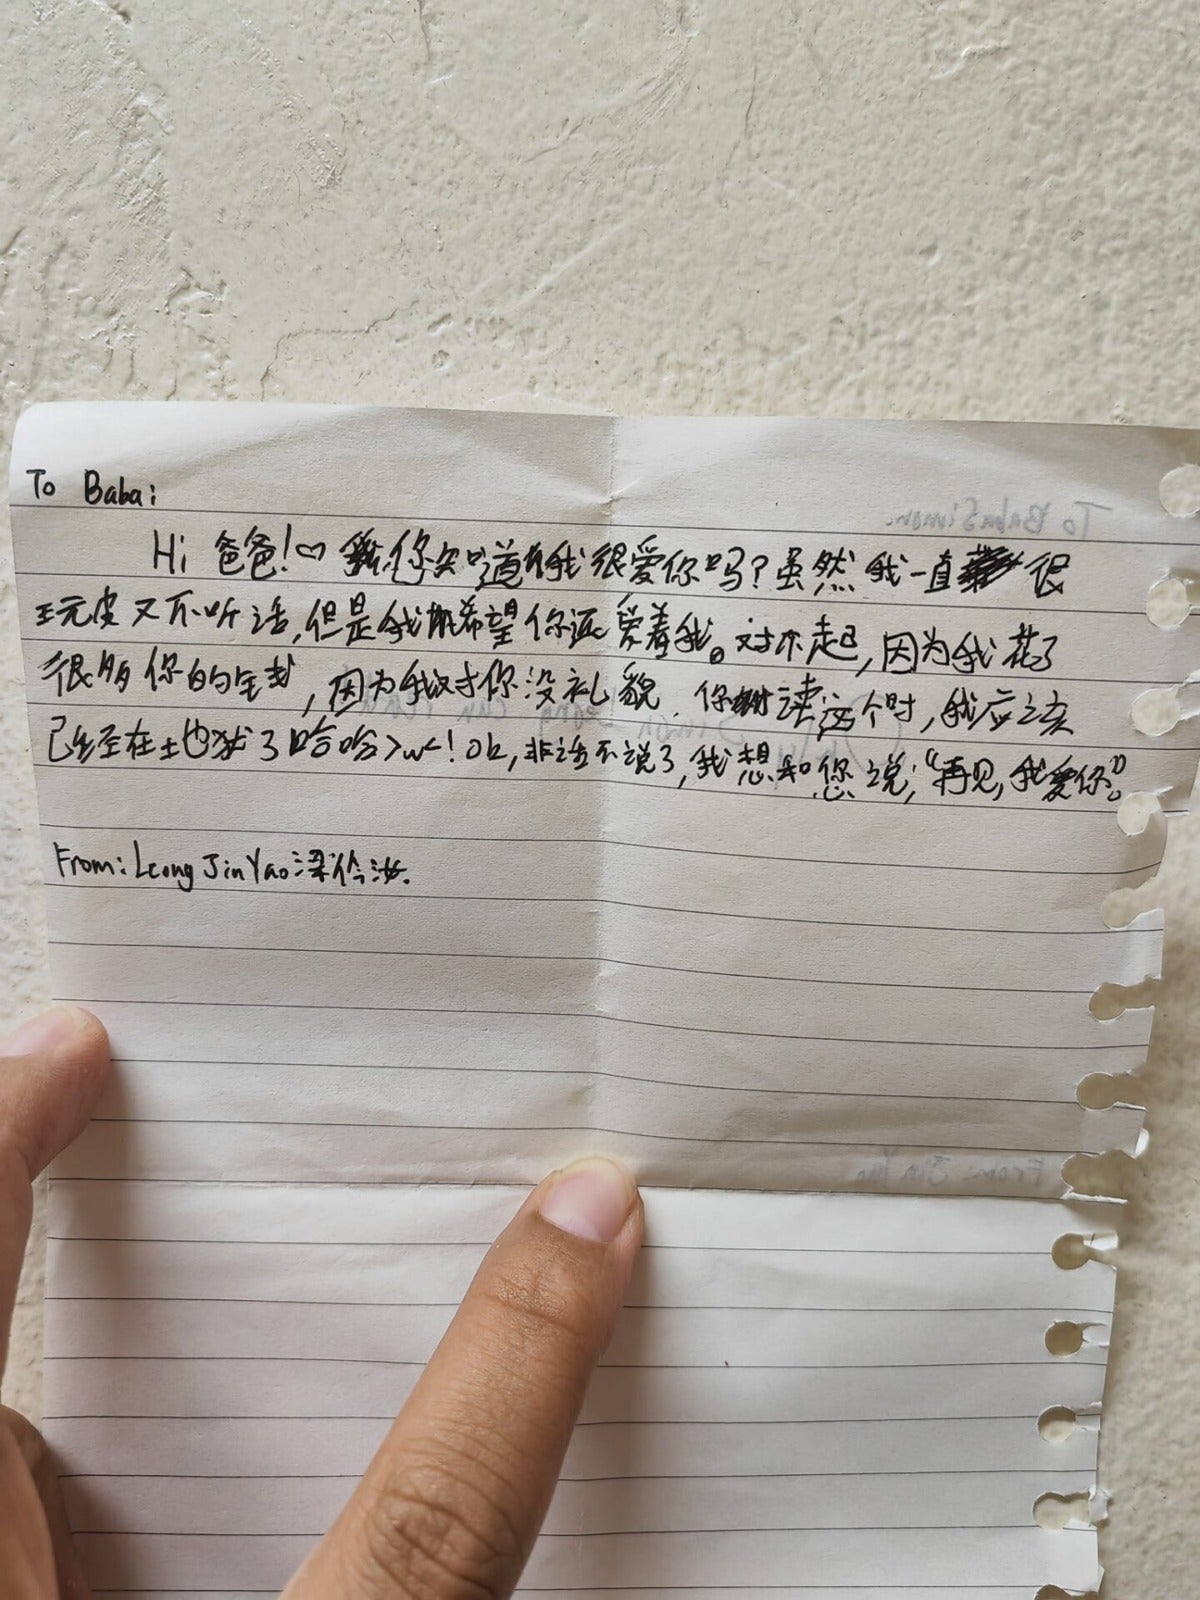 To Baba:
Hi 爸爸!♡ 你知道我很爱你吗?虽然我一直很
玩皮又不听话,但是我希望你还爱着我。对不起,因为我花了
很多你的钱,因为我对你没礼貌.你读这个时,我应该
已经在地狱了哈哈>w<!Ok,非话不说了,我想和您说;“再见,我爱你”。
From: Leong Jin Yao 梁
To Baba Simon.
From: Jin Yao